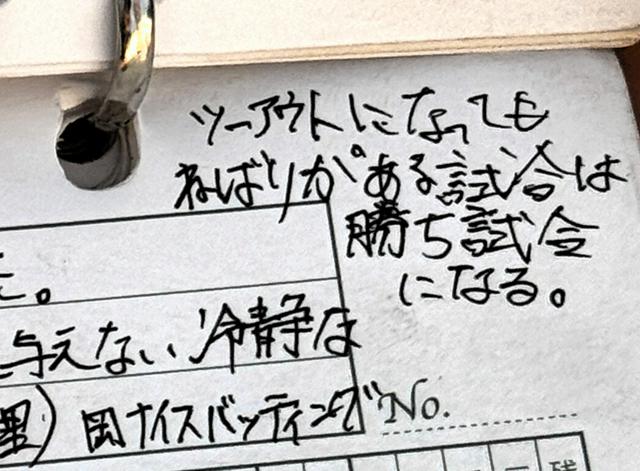 ツーアウトになっても
ねばりがある試合は
勝ち試合
になる。
た。
与えない冷静な
里) 岡ナイスバッティング
No.